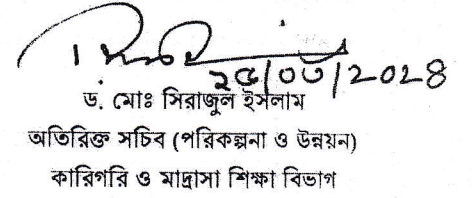 ২৫/০৩/২০২৪
ড. মোঃ সিরাজুল ইসলাম
অতিরিক্ত সচিব (পরিকল্পনা ও উন্নয়ন)
কারিগরি ও মাদ্রাসা শিক্ষা বিভাগ